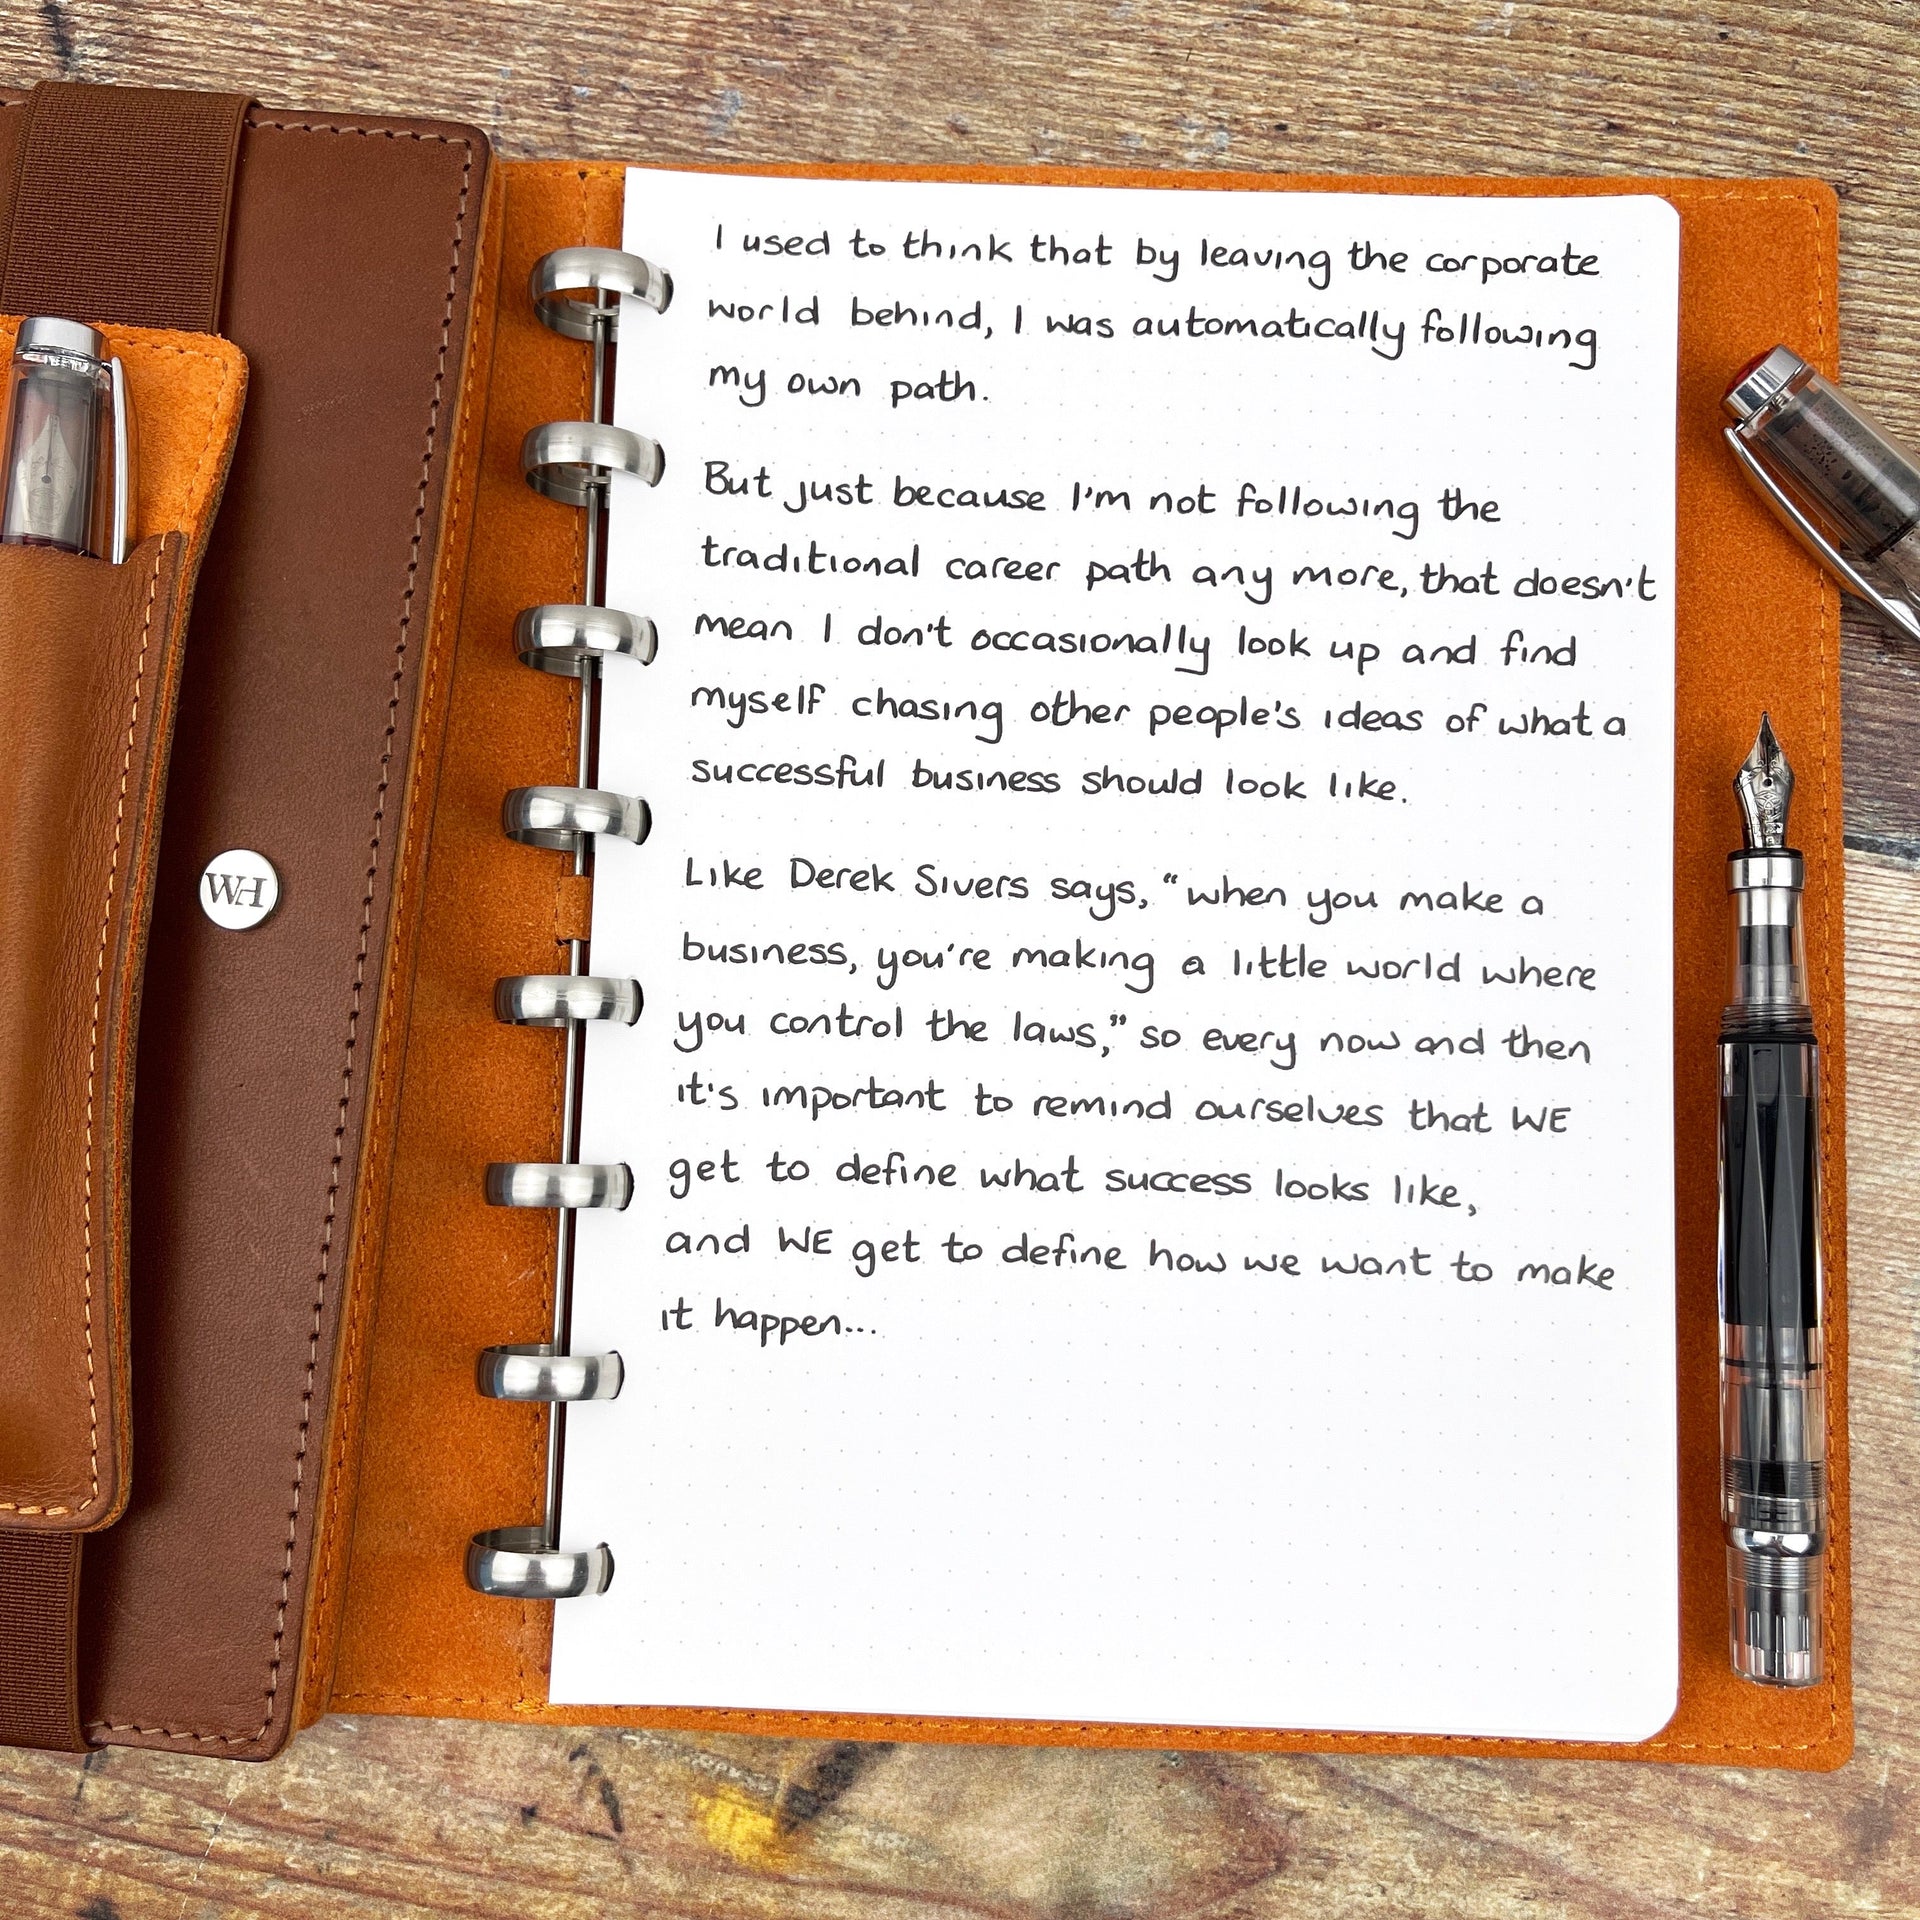 I used to think that by leaving the corporate
world behind, I was automatically following
my own path.
But just because I'm not following the
traditional career path any more, that doesn't
mean I don't occasionally look up and find
myself chasing other people's ideas of what a
successful business should look like.
Like Derek Sivers says, “when you make a
business, you're making a little world where
you control the laws,” so every now and then
it's important to remind ourselves that WE
get to define what success looks like,
and WE get to define how we want to make
it happen...
WH